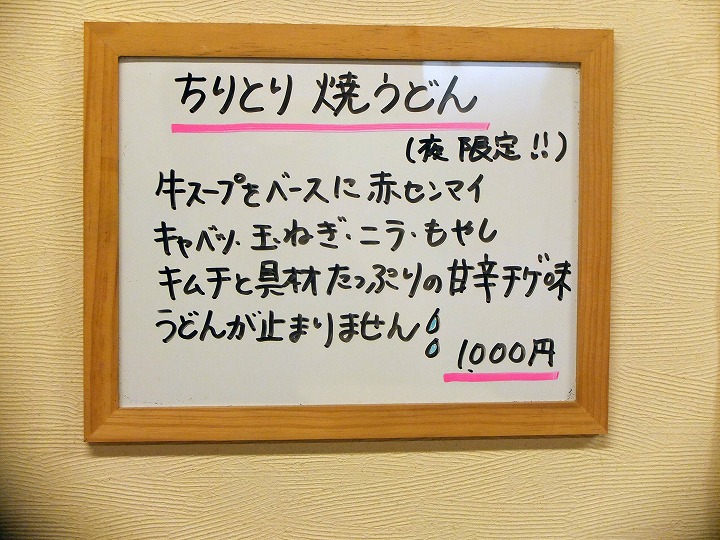 ちりとり 焼うどん
(夜限定!!)
牛スープをベースに赤センマイ
キャベツ・玉ねぎ・ニラ・もやし
キムチと具材たっぷりの甘辛チゲ味
うどんが止まりません
1,000円